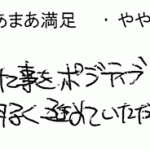 まあまあ満足 ・やや
た事をポジティブ
明るく進めていただ